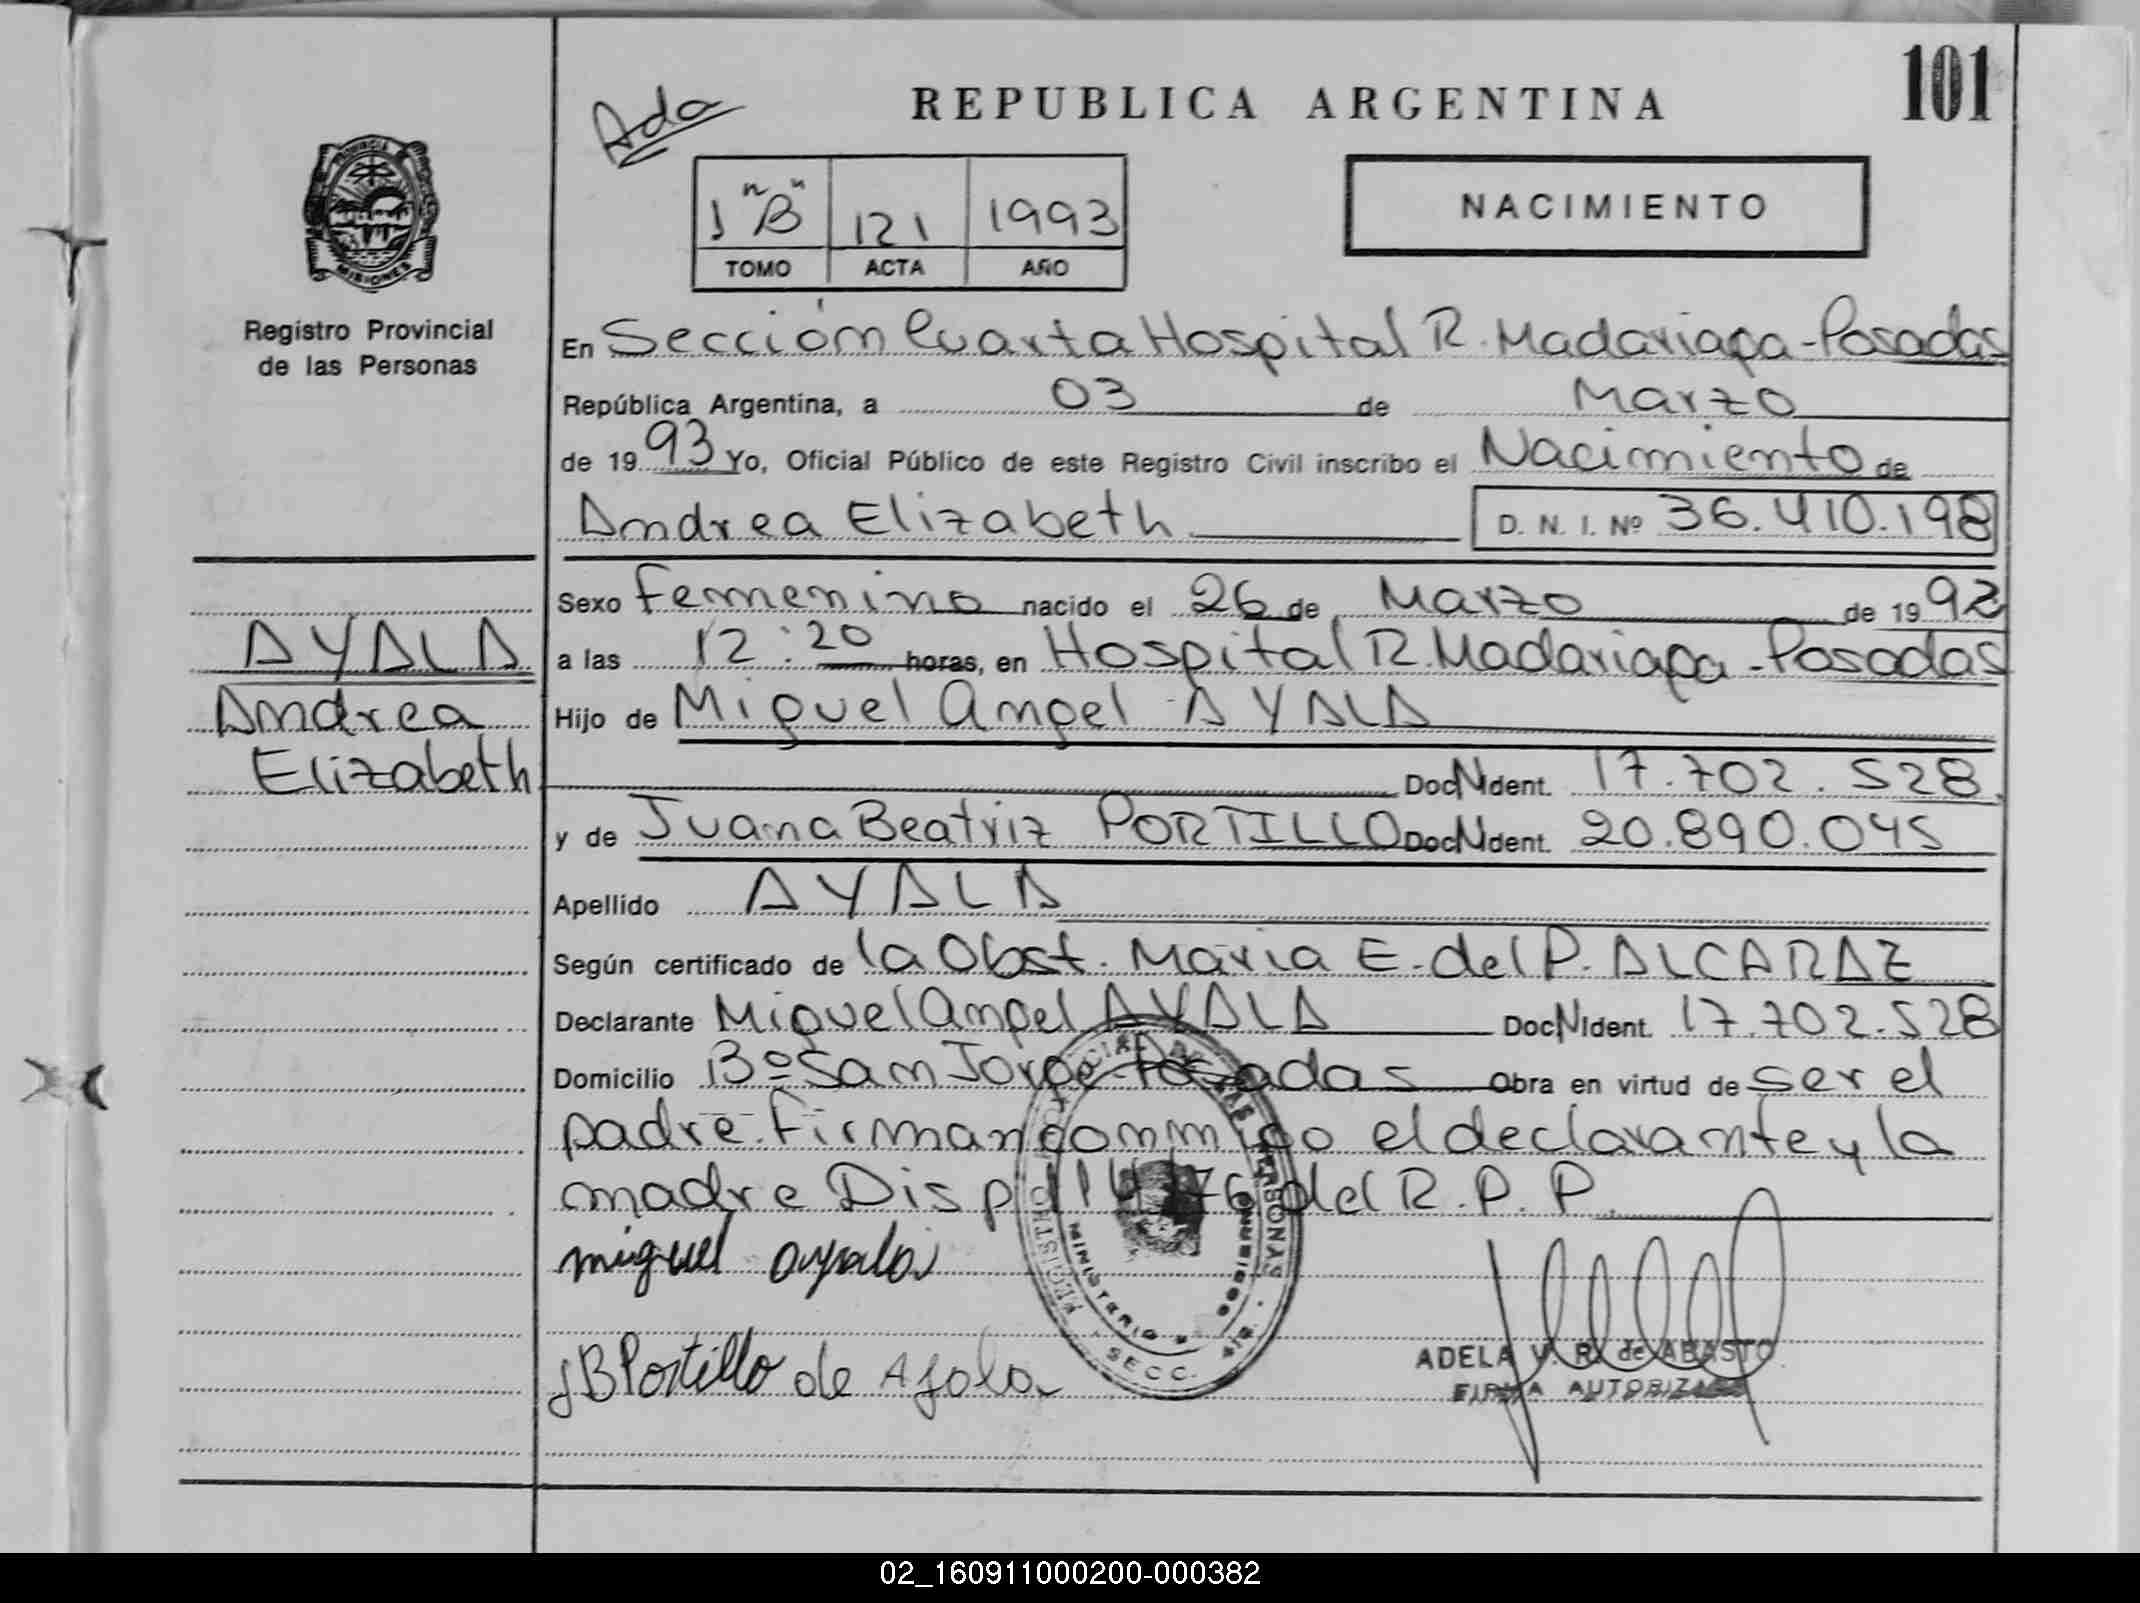 101
REPUBLICA ARGENTINA
Ada
1 "B" 121 1993
TOMO ACTA AÑO
NACIMIENTO
PROVINCIA
MISIONES
Registro Provincial
de las Personas
En Sección Cuarta Hospital R. Madariaga - Posadas
República Argentina, a 03 de Marzo
de 1993 Yo, Oficial Público de este Registro Civil inscribo el Nacimiento de
Andrea Elizabeth D. N. I. Nº 36.410.198
Sexo Femenino nacido el 26 de Marzo de 1992
a las 12:20 horas, en Hospital R. Madariaga - Posadas
Hijo de Miguel Angel AYALA
Doc N Ident. 17.702.528
y de Juana Beatriz PORTILLO Doc N Ident. 20.890.045
Apellido AYALA
Según certificado de la Obst. Maria E. del P. ALCARAZ
Declarante Miguel Angel AYALA Doc N Ident. 17.702.528
Domicilio Bº San Jorge Posadas Obra en virtud de ser el
padre. Firman conmigo el declarante y la
madre Disp 114/76 del R.P.P.
miguel ayala
JB Portillo de Ayala
ADELA V. R. de ABASTO
FIRMA AUTORIZADA
AYALA
Andrea
Elizabeth
REGISTRO PROVINCIAL DE LAS PERSONAS
MINISTERIO GOBIERNO
SECC. 4ta.
02_160911000200-000382